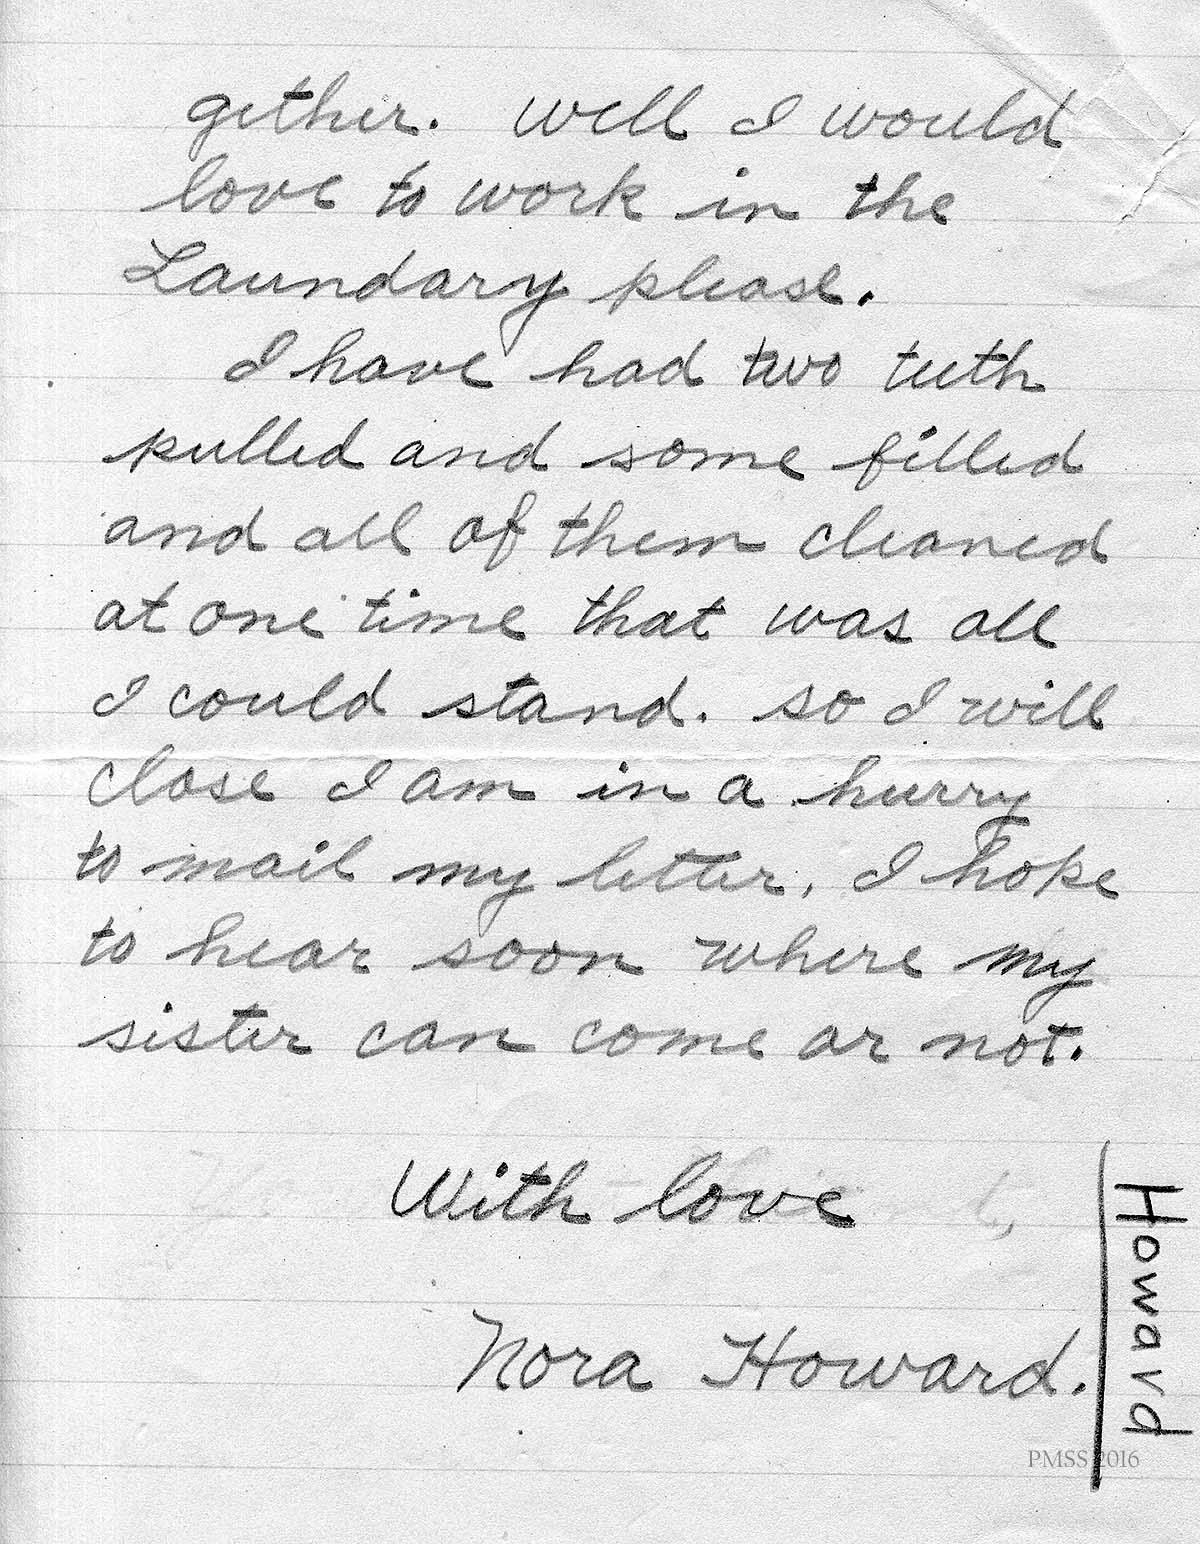 gether. Well I would
love to work in the
Laundary please.
I have had two teeth
pulled and some filled
and all of them cleaned
at one time that was all
I could stand. so I will
close I am in a hurry
to mail my letter. I hope
to hear soon where my
sister can come or not.
With love
Nora Howard.
Howard
PMSS 2016